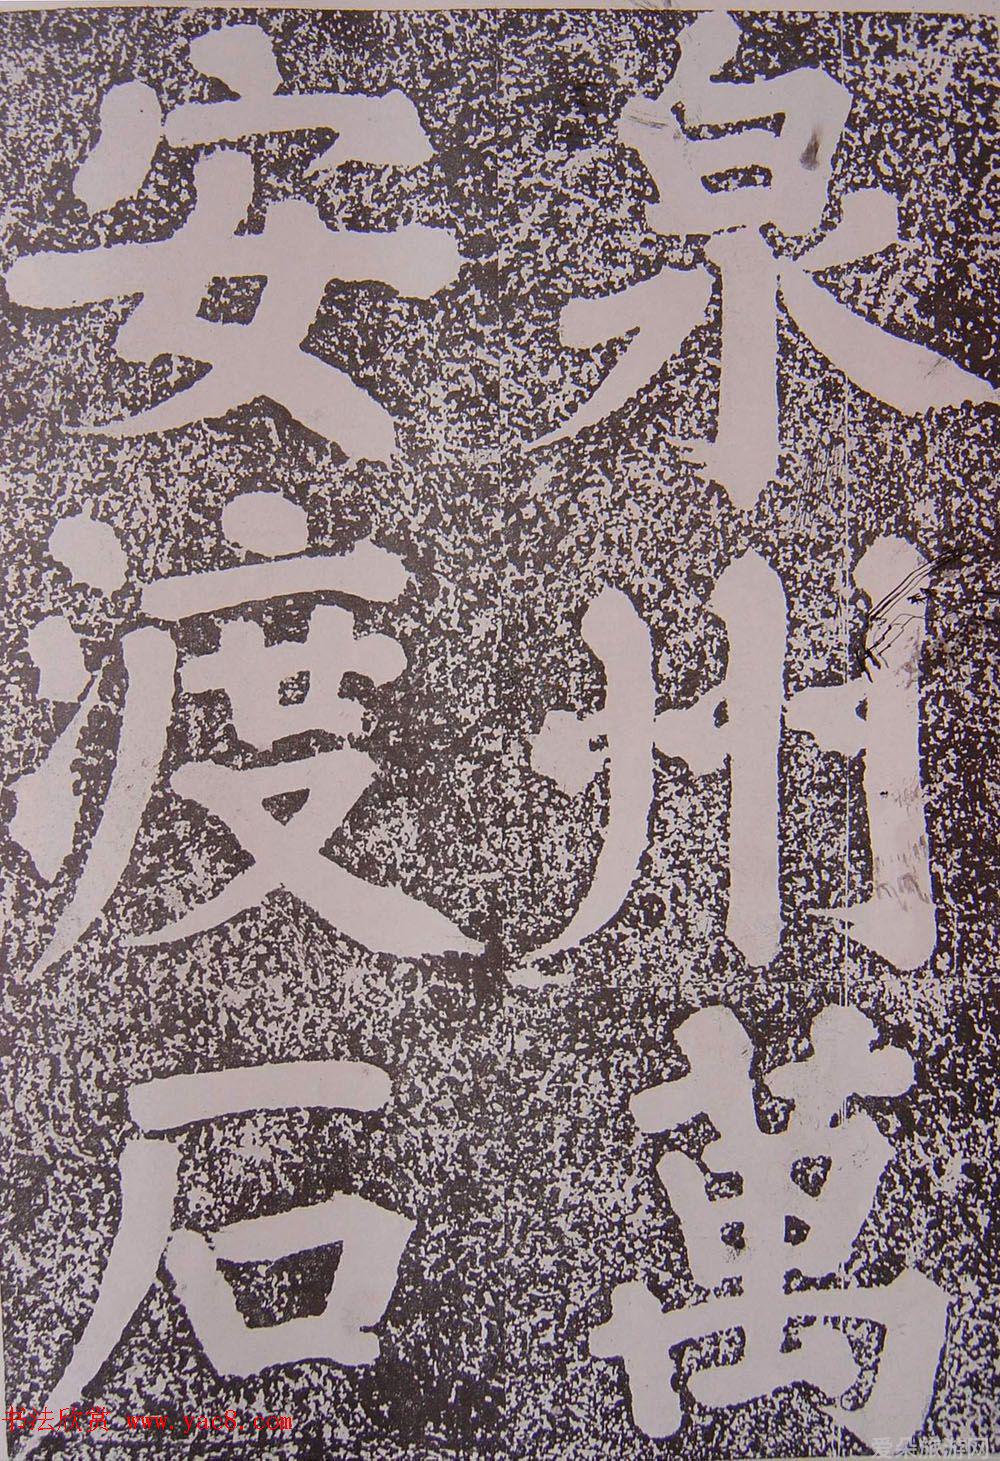 泉州萬
安渡石
书法欣赏 www.yac8.com
爱朵旅游网